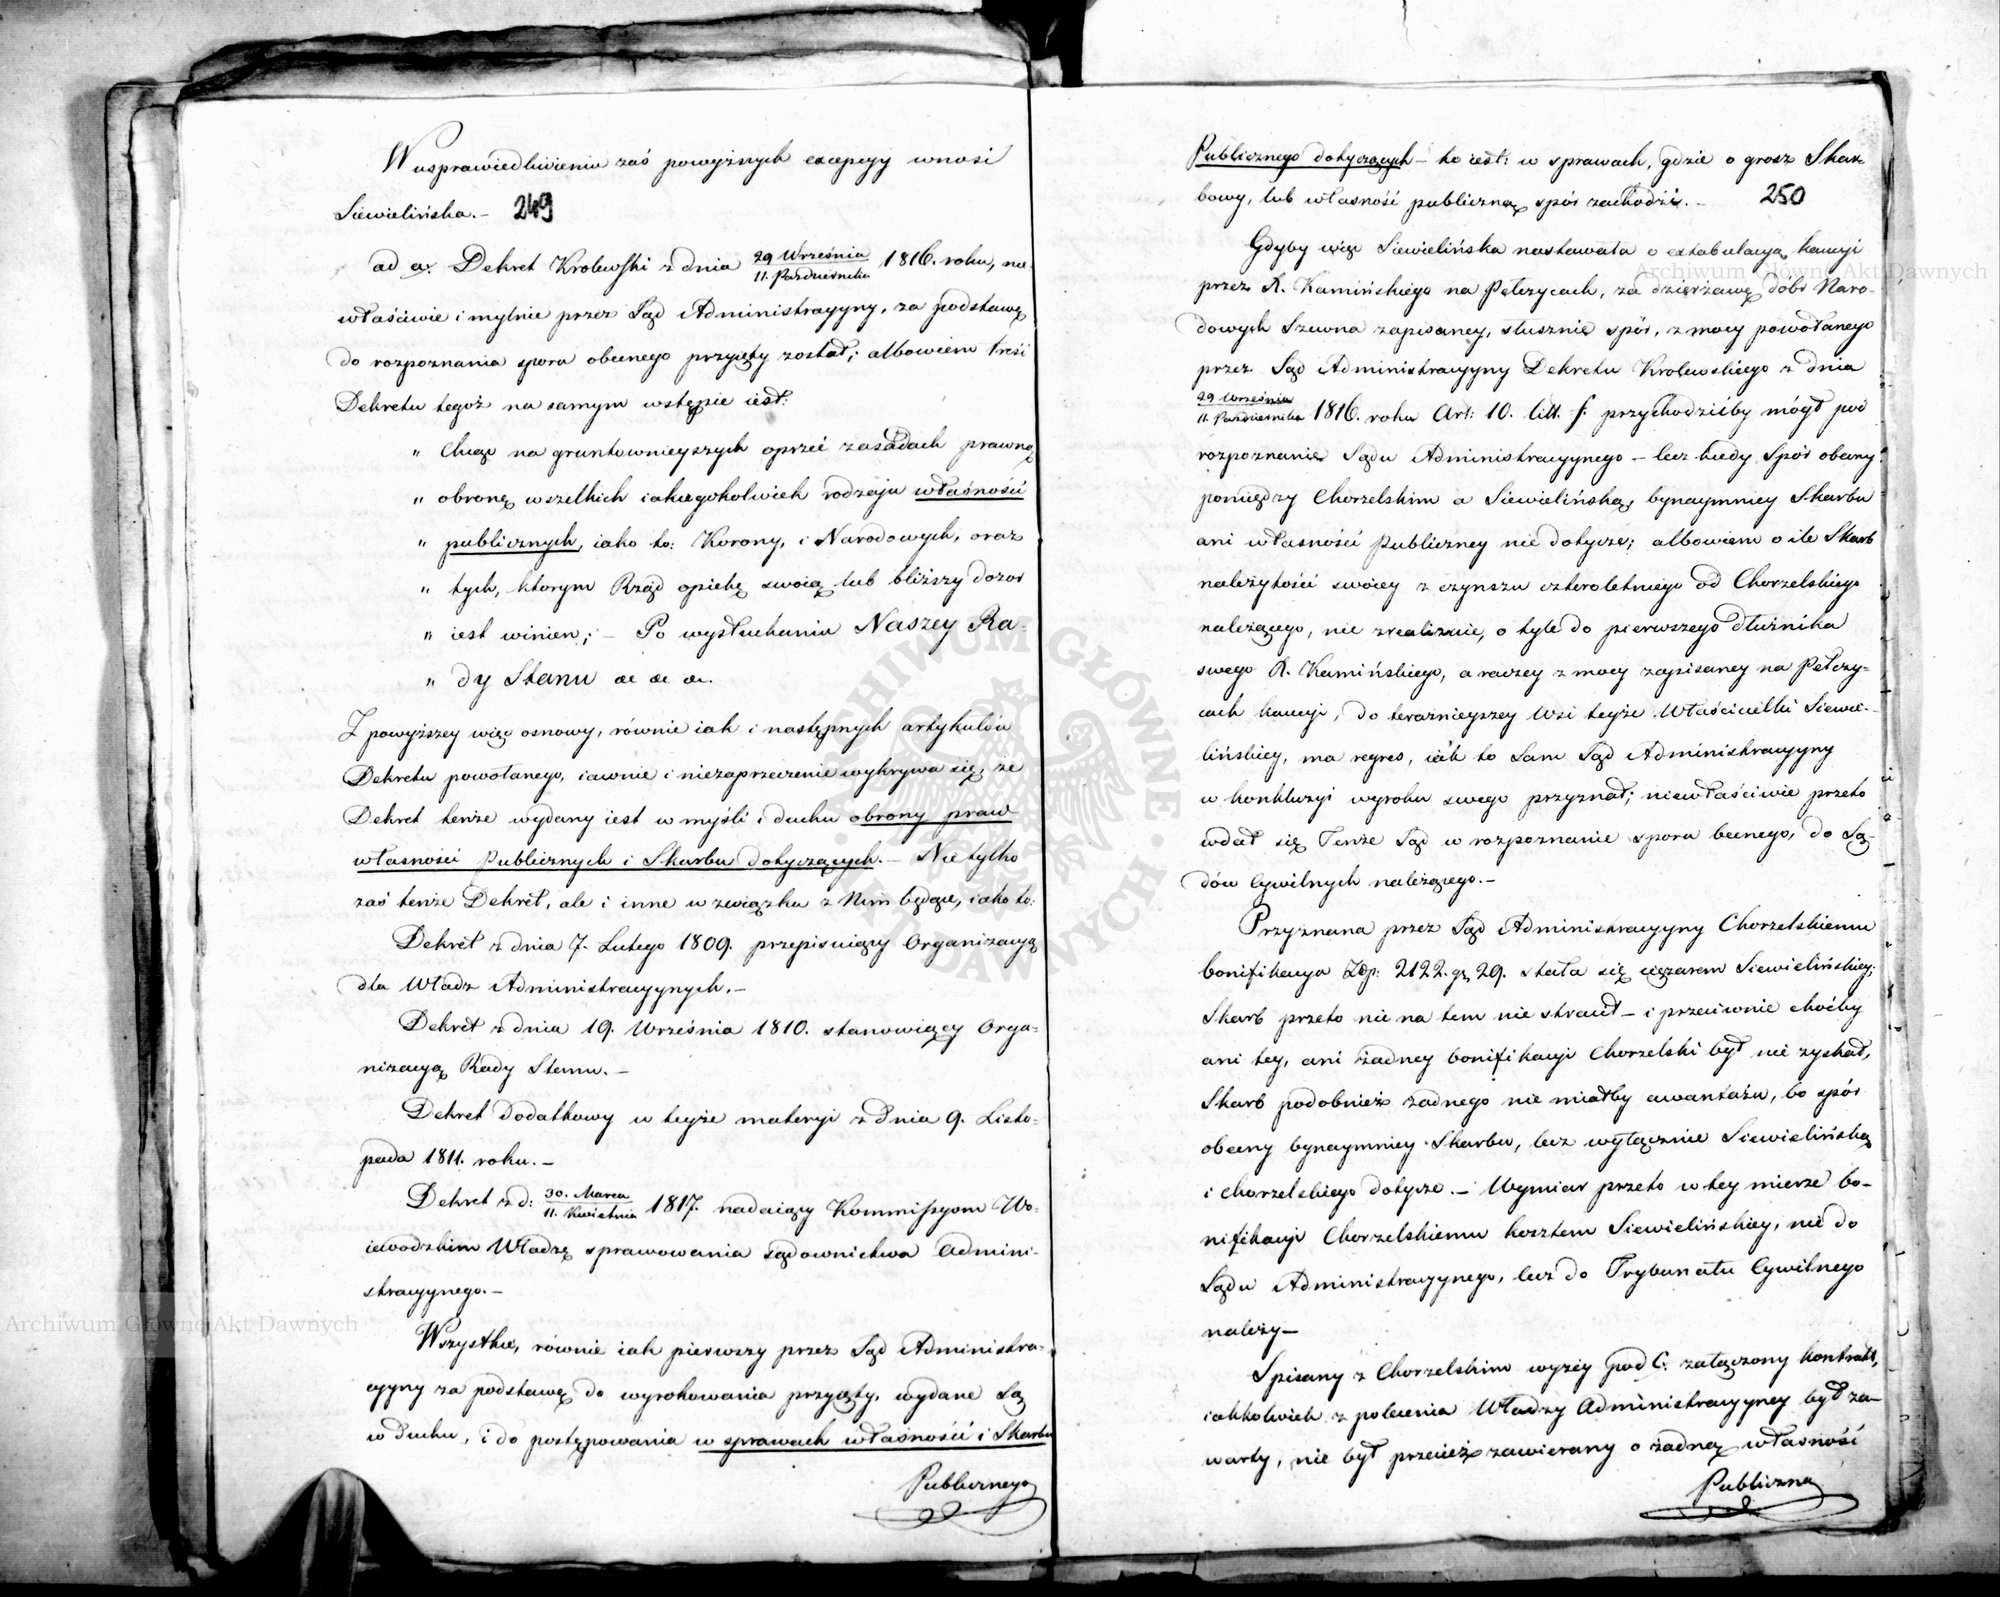 W usprawiedliwieniu zaś powyższych excepcyy wnosi
Siewielińska. – 249
ad a. Dekret Krolewski z dnia 29 Września / 11. Października 1816. roku, nie
właściwie i mylnie przez Sąd Administracyyny, za podstawę
do rozpoznania sporu obecnego przyięty został; albowiem treść
Dekretu tegoż na samym wstępie iest:
" Chcąc na gruntownieyszych oprzeć zasadach prawną
" obronę wszelkich iakiegokolwiek rodzaju własności
" publicznych, iako to: Korony, i Narodowych, oraz
" tych, ktorym Rząd opiekę swoią lub bliższy dozor
" iest winien; – Po wysłuchaniu Naszey Ra-
" dy Stanu &c &c &c.
Z powyższey więc osnowy, równie iak i następnych artykułów
Dekretu powołanego, iawnie i niezaprzeczenie wykrywa się, że
Dekret tenże wydany iest w myśli i duchu obrony praw
własności Publicznych i Skarbu dotyczących. – Nie tylko
zaś tenże Dekret, ale i inne w związku z Nim będące, iako to:
Dekret z dnia 7. Lutego 1809. przepisuiący Organizacyą
dla Władz Administracyynych. –
Dekret z dnia 19. Września 1810. stanowiący Orga-
nizacyą Rady Stanu. –
Dekret dodatkowy w teyże materyi z dnia 9. Listo-
pada 1811. roku. –
Dekret z d: 30. Marca / 11. Kwietnia 1817. nadaiący Kommissyom Wo-
iewodzkim Władzę sprawowania sądownictwa Admini-
stracyynego. –
Wszystkie, równie iak pierwszy przez Sąd Administra-
cyyny za podstawę do wyrokowania przyięty, wydane są
w duchu, i do postępowania w sprawach własności i Skarbu
Publicznego
Publicznego dotyczących – to iest: w sprawach, gdzie o grosz Skar-
bowy, lub własność publiczną spór zachodzi. – 250
Gdyby więc Siewielińska nastawała o extabulacyą kaucyi
przez R. Kamińskiego na Pełczycach, za dzierżawę dobr Naro-
dowych Szewna zapisaney, słusznie spór, z mocy powołanego
przez Sąd Administracyyny Dekretu Krolewskiego z dnia
29 Września / 11. Października 1816. roku Art: 10. litt. f. przychodziłby mógł pod
rozpoznanie Sądu Administracyynego – lecz kiedy Spór obecny
pomiędzy Chorzelskim a Siewielińską, bynaymniey Skarbu
ani własności Publiczney nie dotyczę; albowiem o ile Skarb
należytości swoiey z czynszu czteroletniego od Chorzelskiego
należącego, nie zrealizuie, o tyle do pierwszego dłużnika
swego R. Kamińskiego, a raczey z mocy zapisaney na Pełczy-
cach kaucyi, do teraźnieyszey Wsi teyże Właścicielki Siewie-
lińskiey, ma regres, iak to Sam Sąd Administracyyny
w konkluzyi wyroku swego przyznał; niewłaściwie przeto
wdał się Tenże Sąd w rozpoznanie sporu becnego, do Są-
dów Cywilnych należącego. –
Przyznana przez Sąd Administracyyny Chorzelskiemu
bonifikacya Złp: 2122. gr 29. stała się ciężarem Siewielińskiey;
Skarb przeto nic na tem nie stracił – i przeciwnie choćby
ani tey, ani żadney bonifikacyi Chorzelski był nie zyskał,
Skarb podobnież żadnego nie miałby awantażu, bo spór
obecny bynaymniey Skarbu, lecz wyłącznie Siewielińską
i Chorzelskiego dotycze. – Wymiar przeto w tey mierze bo-
nifikacyi Chorzelskiemu kosztem Siewielińskiey, nie do
Sądu Administracyynego, lecz do Trybunału Cywilnego
należy –
Spisany z Chorzelskim wyżey pod C. załączony kontrakt,
iakkolwiek z polecenia Władzy Administracyyney był za-
warty, nie był przecież zawierany o żadną własność
Publiczną
Archiwum Główne Akt Dawnych
Archiwum Główne Akt Dawnych
ARCHIWUM GŁÓWNE AKT DAWNYCH